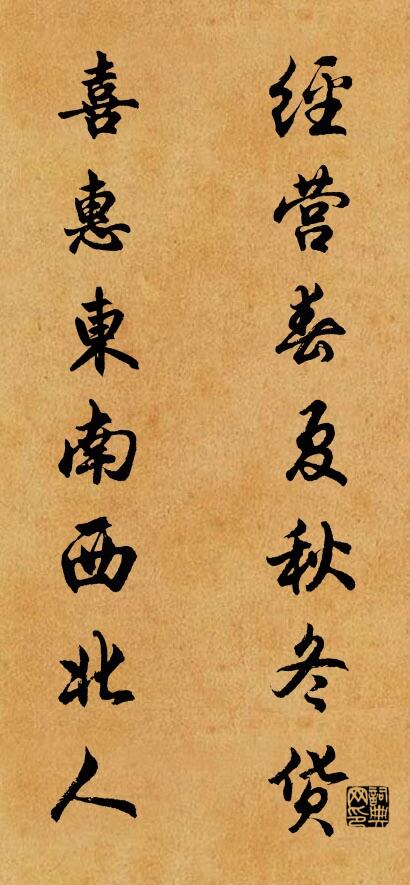 經营春夏秋冬货
喜惠東南西北人
詞典網印